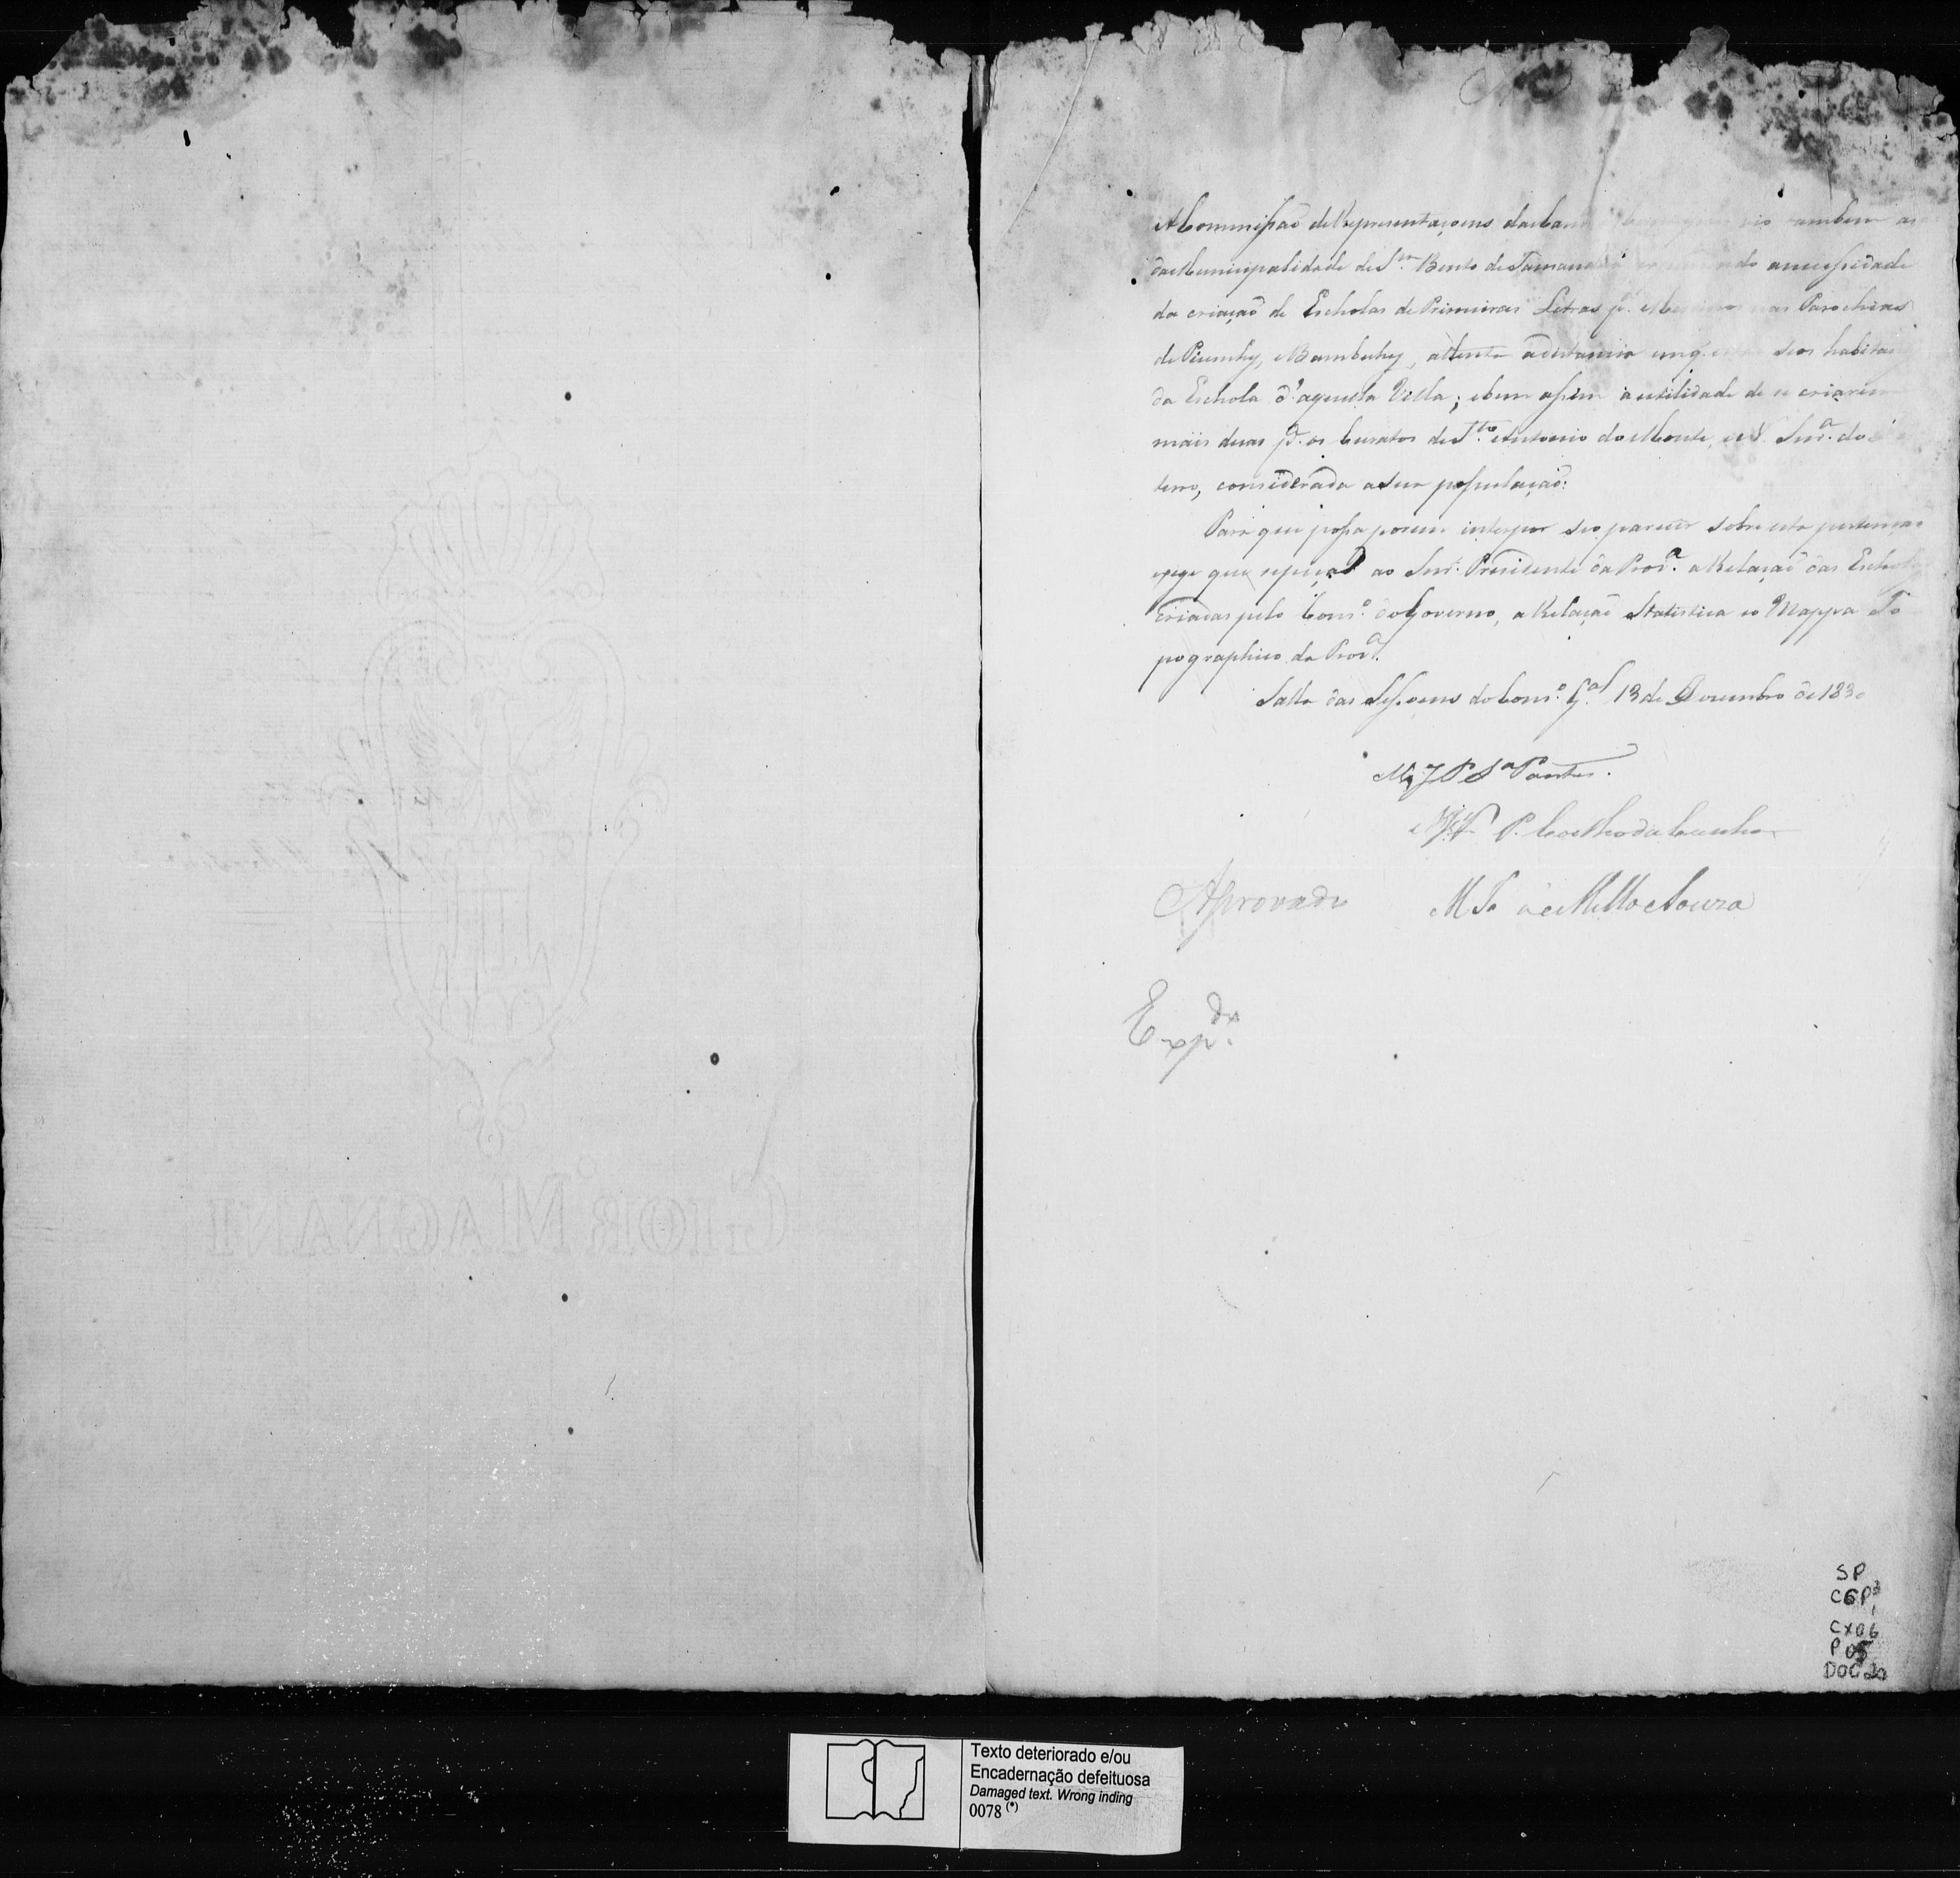 A Commissaõ de Representaçoens das Cam tambem as
da Municipalidade de S.m Bento de Tamanduá a necessidade
da criaçaõ de Escholas de Primeiras Letras p.a Meninos nas Parochias
de Piumhy, e Bambuhy, attenta a distancia em q. seos habitan
da Eschola d'aquella Villa; e bem assim a utilidade de se criarem
mais duas p.a os Curatos de S.to Antonio do Monte, e N. Snr.a do
terro, considerada a sua populaçaõ:
Para que possa porem interpor seo parecer sobre esta pertençaõ
exige que se peça ao Snr. Presidente da Prov.a a Relaçaõ das Escholas
criadas pelo Cons.o do Governo, a Relaçaõ Statistica e o Mappa To
pographico da Prov.a
Salla das Sessoens do Cons.o G.al 13 de Dezembro de 1830
M. J. P. S.a Pontes.
P. Coelho da Cunha
Aprovado M de Mello e Souza
Exp.do
GIOR MAGNANI
SP
CGP 3
1
CX06
P 05
DOC 20
Texto deteriorado e/ou
Encadernação defeituosa
Damaged text. Wrong inding
0078 (*)